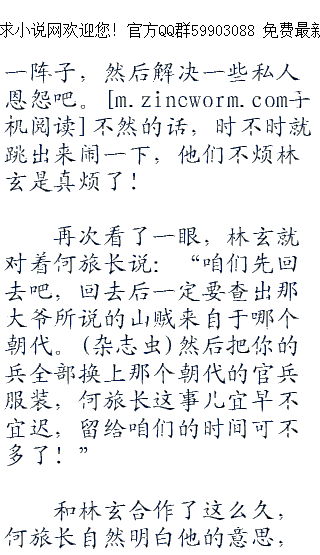 求小说网欢迎您！官方QQ群59903088 免费最新
一阵子，然后解决一些私人
恩怨吧。[m.zincworm.com手
机阅读]不然的话，时不时就
跳出来闹一下，他们不烦林
玄是真烦了！
再次看了一眼，林玄就
对着何旅长说：“咱们先回
去吧，回去后一定要查出那
大爷所说的山贼来自于哪个
朝代。(杂志虫)然后把你的
兵全部换上那个朝代的官兵
服装，何旅长这事儿宜早不
宜迟，留给咱们的时间可不
多了！”
和林玄合作了这么久，
何旅长自然明白他的意思，